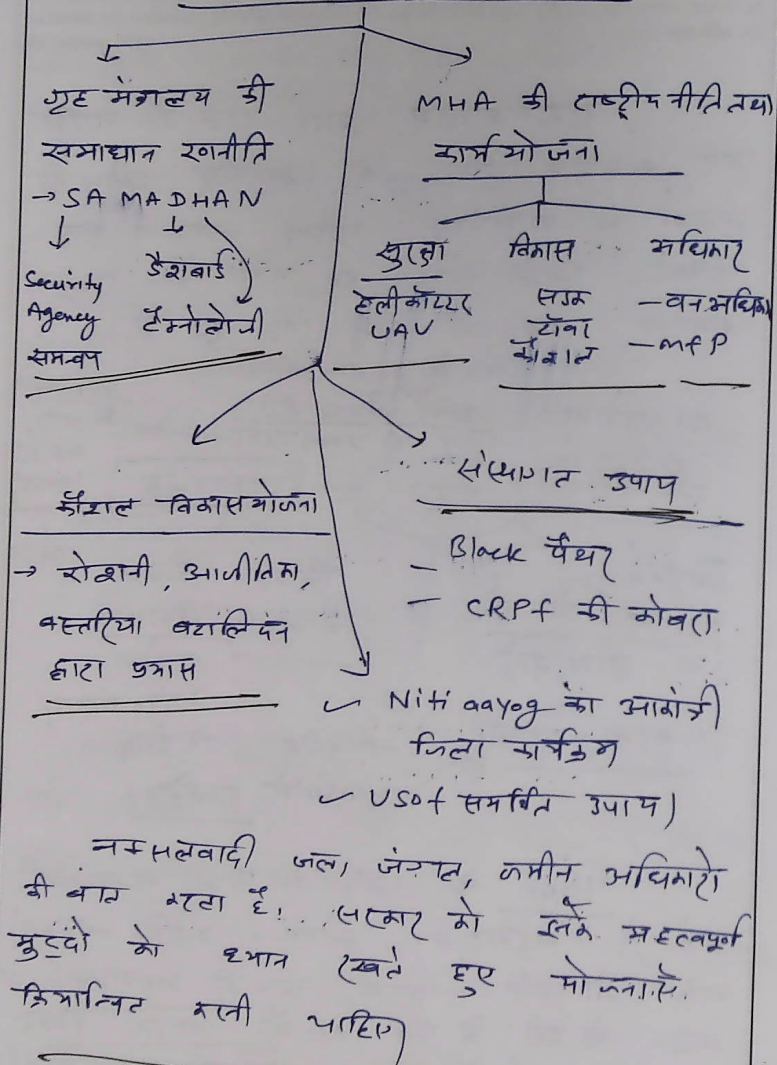 गृह मंत्रालय की
समाधान रणनीति
→ SAMADHAN
Security
Agency
समन्वय
डैशबोर्ड
टैक्नोलॉजी
MHA की राष्ट्रीय नीति तथा
कार्ययोजना
सुरक्षा
हेलीकॉप्टर
UAV
विकास
सड़क
टॉवर
कौशल
अधिकार
- वन अधिकार
- MFP
कौशल विकास योजना
→ रोशनी, आजीविका,
बस्तरिया बटालियन
द्वारा प्रयास
संस्थागत उपाय
- Black पैंथर
- CRPF की कोबरा
✓ Niti aayog का आकांक्षी
जिला कार्यक्रम
✓ USOF समर्थित उपाय)
नक्सलवादी जल, जंगल, जमीन अधिकारो
की बात करता है। सरकार को महत्वपूर्ण
मुद्दों को ध्यान रखते हुए योजनाएँ
क्रियान्वित करनी चाहिए